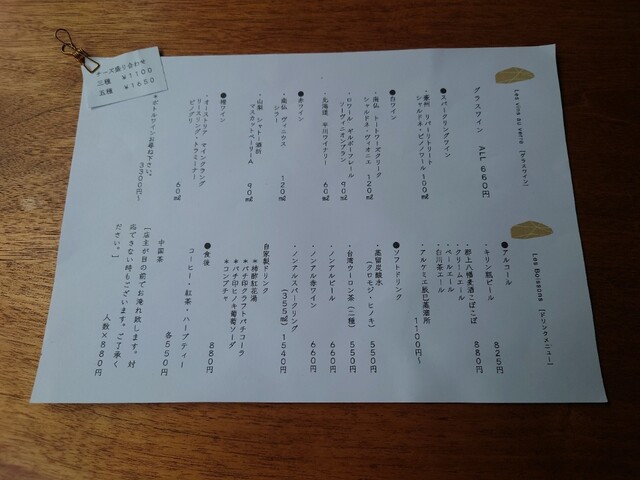 Les vins au verre [グラスワイン]
グラスワイン ALL 660円
●スパークリングワイン
・豪州 リバーリトリート
シャルドネ・ピノノワール 100㎖
●白ワイン
・南仏 トートワーズクリーク
シャルドネ・ヴィオニエ 120㎖
・ロワール ギルボーフレール
ソーヴィニオンブラン 90㎖
・北海道 平川ワイナリー 60㎖
●赤ワイン
・南仏 ヴィニウス
シラー 120㎖
・山梨 シャトー酒折
マスカットベーリーA 90㎖
●橙ワイン
・オーストリア マインクラング
リースリング・トラミーナー
ピノグリ 60㎖
*ボトルワインお尋ね下さい。
3300円~
Les Boissons [ドリンクメニュー]
●アルコール
・キリン瓶ビール 825円
・郡上八幡麦酒こぼこぼ 880円
・クリームエール
・ペールエール
・白川茶エール
・アルケミエ辰巳蒸溜所
1100円~
●ソフトドリンク
・蒸留炭酸水
(クロモジ・ヒノキ) 550円
・台湾ウーロン茶(二種) 550円
・ノンアルビール 660円
・ノンアル赤ワイン 660円
・ノンアルスパークリング
(355㎖) 1540円
自家製ドリンク
*棒酢紅花湯
*パチ印クラフトパチコーラ
*パチ印ヒノキ葡萄ソーダ
*コンブチャ
880円
●食後
コーヒー・紅茶・ハーブティー
各550円
中国茶
[店主が目の前でお淹れ致します。対
応できない時もございます。ご了承く
ださい。]
人数×880円
チーズ盛り合わせ
三種 ¥1100
五種 ¥1650